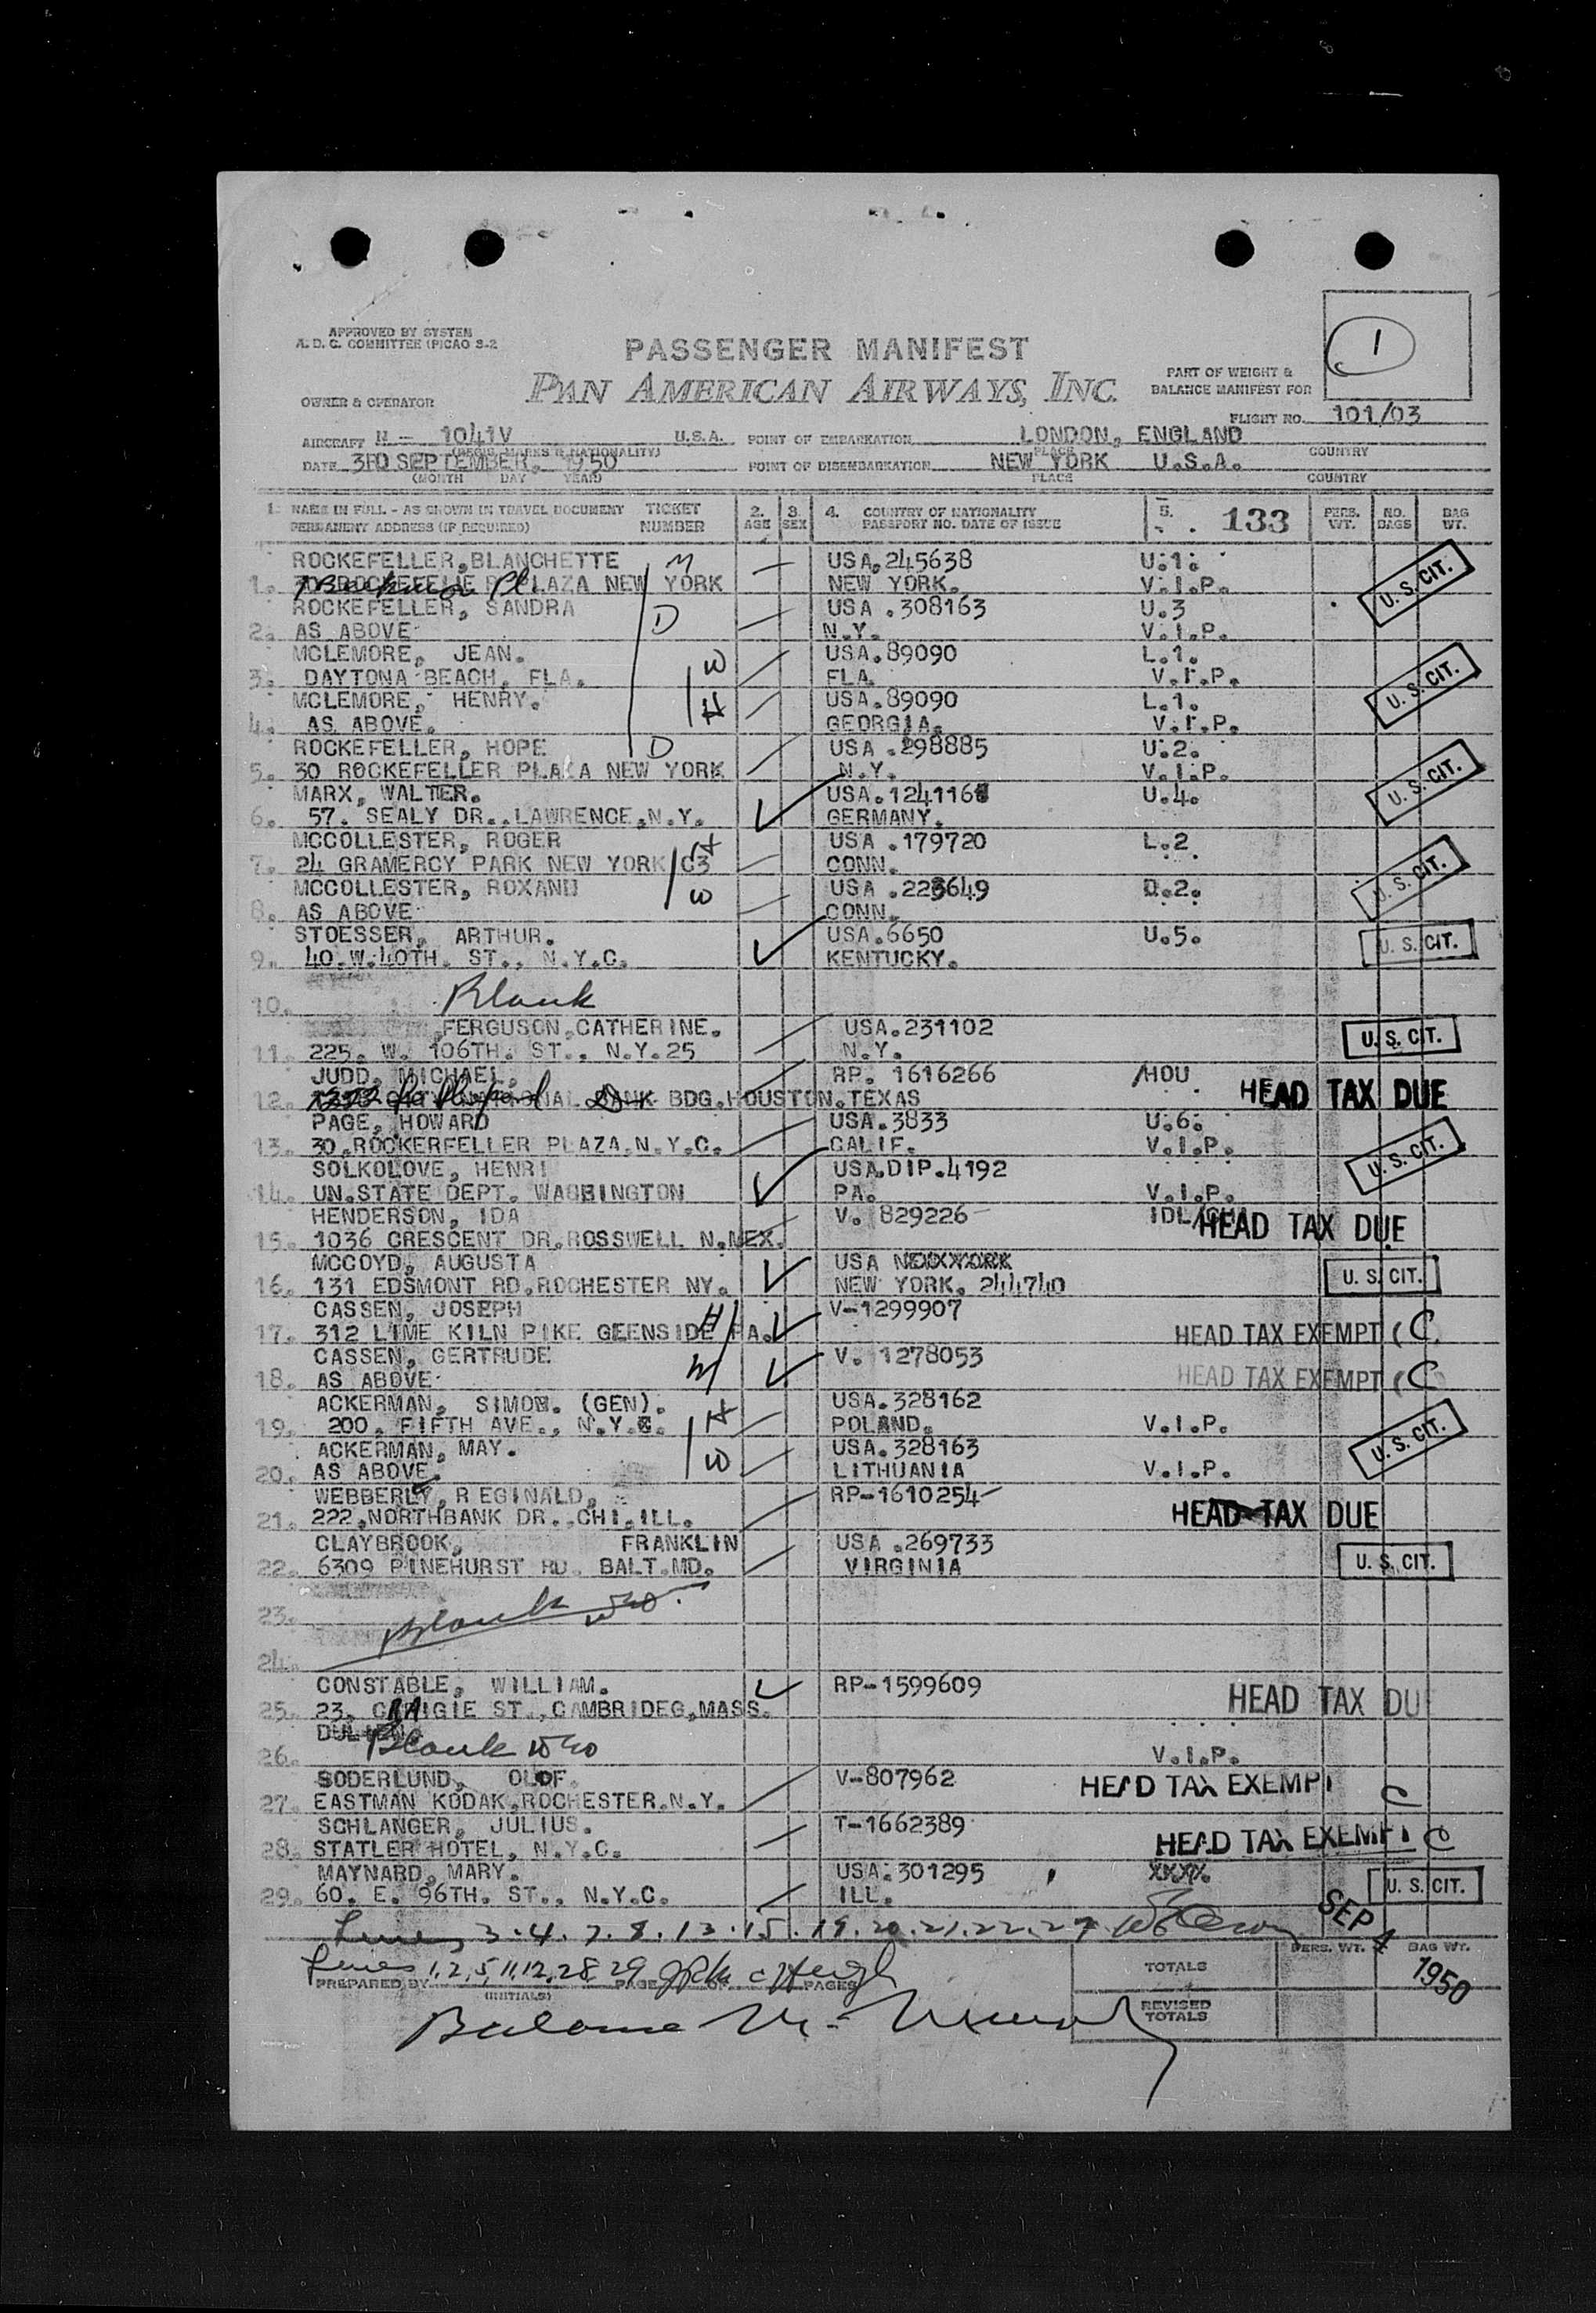 APPROVED BY SYSTEM
A. D. C. COMMITTEE (PICAO S-2
PASSENGER MANIFEST
1
PAN AMERICAN AIRWAYS, INC.
PART OF WEIGHT &
BALANCE MANIFEST FOR
OWNER & OPERATOR
FLIGHT NO. 101/03
AIRCRAFT N - 1041V U.S.A. POINT OF EMBARKATION LONDON, ENGLAND
(REGIS. MARKS & NATIONALITY) PLACE COUNTRY
DATE 3RD SEPTEMBER, 1950 POINT OF DISEMBARKATION NEW YORK U.S.A.
(MONTH DAY YEAR) PLACE COUNTRY
1. NAME IN FULL - AS SHOWN IN TRAVEL DOCUMENT TICKET 2. 3. 4. COUNTRY OF NATIONALITY 5. 133 PERS. NO. BAG
PERMANENT ADDRESS (IF REQUIRED) NUMBER AGE SEX PASSPORT NO. DATE OF ISSUE WT. BAGS WT.
ROCKEFELLER,BLANCHETTE M USA.245638 U.1.
1. PLAZA NEW YORK NEW YORK. V.I.P. U.S. CIT.
ROCKEFELLER, SANDRA D USA .308163 U.3
2. AS ABOVE N.Y. V.I.P.
MCLEMORE, JEAN. W USA.89090 L.1.
3. DAYTONA BEACH, FLA. FLA. V.I.P. U.S. CIT.
MCLEMORE, HENRY. H USA.89090 L.1.
4. AS ABOVE. GEORGIA. V.I.P.
ROCKEFELLER, HOPE D USA .298885 U.2.
5. 30 ROCKEFELLER PLAZA NEW YORK N.Y. V.I.P. U.S. CIT.
MARX, WALTER. USA. U.4.
6. 57. SEALY DR., LAWRENCE,N.Y. GERMANY.
MCCOLLESTER, ROGER H USA .179720 L.2
7. 24 GRAMERCY PARK NEW YORK C3 CONN. U.S. CIT.
MCCOLLESTER, ROXAND W USA .223649
8. AS ABOVE CONN.
STOESSER, ARTHUR. USA.6650 U.5. U.S. CIT.
9. 40.W.40TH. ST., N.Y.C. KENTUCKY.
10. Blank
FERGUSON,CATHERINE. USA.231102 U.S. CIT.
11. 225. W. 106TH. ST., N.Y.25 N.Y.
JUDD, MICHAEL. RP. 1616266 /HOU HEAD TAX DUE
12. BANK BDG.HOUSTON.TEXAS
PAGE, HOWARD USA.3833 U.6.
13. 30.ROCKERFELLER PLAZA.N.Y.C. CALIF. V.I.P. U.S. CIT.
SOLKOLOVE, HENRI USA.DIP.4192
14. UN.STATE DEPT. WASHINGTON PA. V.I.P.
HENDERSON, IDA V. 829226 IDL HEAD TAX DUE
15. 1036 CRESCENT DR.ROSSWELL N.MEX.
MCCOYD, AUGUSTA USA U.S. CIT.
16. 131 EDSMONT RD.ROCHESTER NY. NEW YORK. 244740
CASSEN, JOSEPH H V-1299907
17. 312 LIME KILN PIKE GEENSIDE PA. HEAD TAX EXEMPT (C
CASSEN, GERTRUDE W V. 1278053
18. AS ABOVE HEAD TAX EXEMPT (C
ACKERMAN, SIMON. (GEN). H USA.328162
19. 200. FIFTH AVE., N.Y.C. POLAND. V.I.P. U.S. CIT.
ACKERMAN, MAY. W USA.328163
20. AS ABOVE. LITHUANIA V.I.P.
WEBBERLY, REGINALD, RP-1610254 HEAD TAX DUE
21. 222.NORTHBANK DR..CHI.ILL.
CLAYBROOK, FRANKLIN USA .269733 U.S. CIT.
22. 6309 PINEHURST RD. BALT.MD. VIRGINIA
23. Blank
24.
CONSTABLE, WILLIAM. RP-1599609 HEAD TAX DU
25. 23, CRAIGIE ST.,CAMBRIDEG,MASS.
26. Blank V.I.P.
SODERLUND, OLOF. V-807962 HEAD TAX EXEMPT C
27. EASTMAN KODAK,ROCHESTER.N.Y.
SCHLANGER, JULIUS. T-1662389 HEAD TAX EXEMPT C
28. STATLER HOTEL, N.Y.C.
MAYNARD, MARY. USA.301295 XXXX. U.S. CIT.
29. 60. E. 96TH. ST., N.Y.C. ILL.
Lines 3.4.7.8.13.15.19.20.21.22.27 SEP 4 1950
Lines 1,2,5,11,12,28,29
PREPARED BY PAGE OF PAGES TOTALS PERS. WT. BAG WT.
(INITIALS)
REVISED
TOTALS
Balance